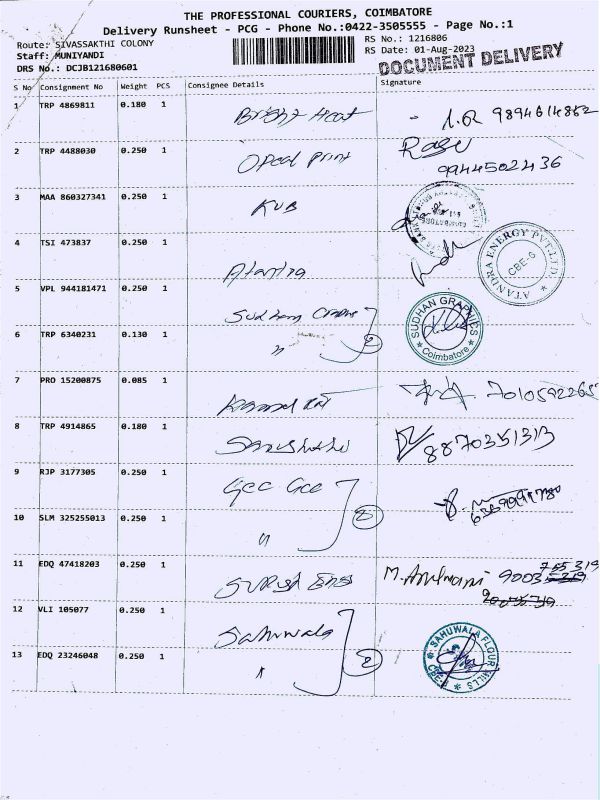 THE PROFESSIONAL COURIERS, COIMBATORE
Delivery Runsheet - PCG - Phone No.:0422-3505555 - Page No.:1
Route: SIVASSAKTHI COLONY
Staff: MUNIYANDI
DRS No.: DCJB121680601
RS No.: 1216806
RS Date: 01-Aug-2023
DOCUMENT DELIVERY
S No Consignment No Weight PCS Consignee Details Signature
1 TRP 4869811 0.180 1 9894614862
2 TRP 4488030 0.250 1 Opeal Print Rage 9944502436
3 MAA 860327341 0.250 1 KVB
4 TSI 473837 0.250 1 Atantra
ATANDRA ENERGY PVT.LTD CBE-6
5 VPL 944181471 0.250 1
6 TRP 6340231 0.130 1 " 2
SUDHAN GRAPHICS Coimbatore
7 PRO 15200875 0.085 1 7010592265
8 TRP 4914865 0.180 1 8870351313
9 RJP 3177305 0.250 1 Gee Gee
10 SLM 325255013 0.250 1 " 2
11 EDQ 47418203 0.250 1 M. 9003 755319
12 VLI 105077 0.250 1 Sahuwala
13 EDQ 23246048 0.250 1 " 2
SAHUWALA FLOUR MILLS CBE-